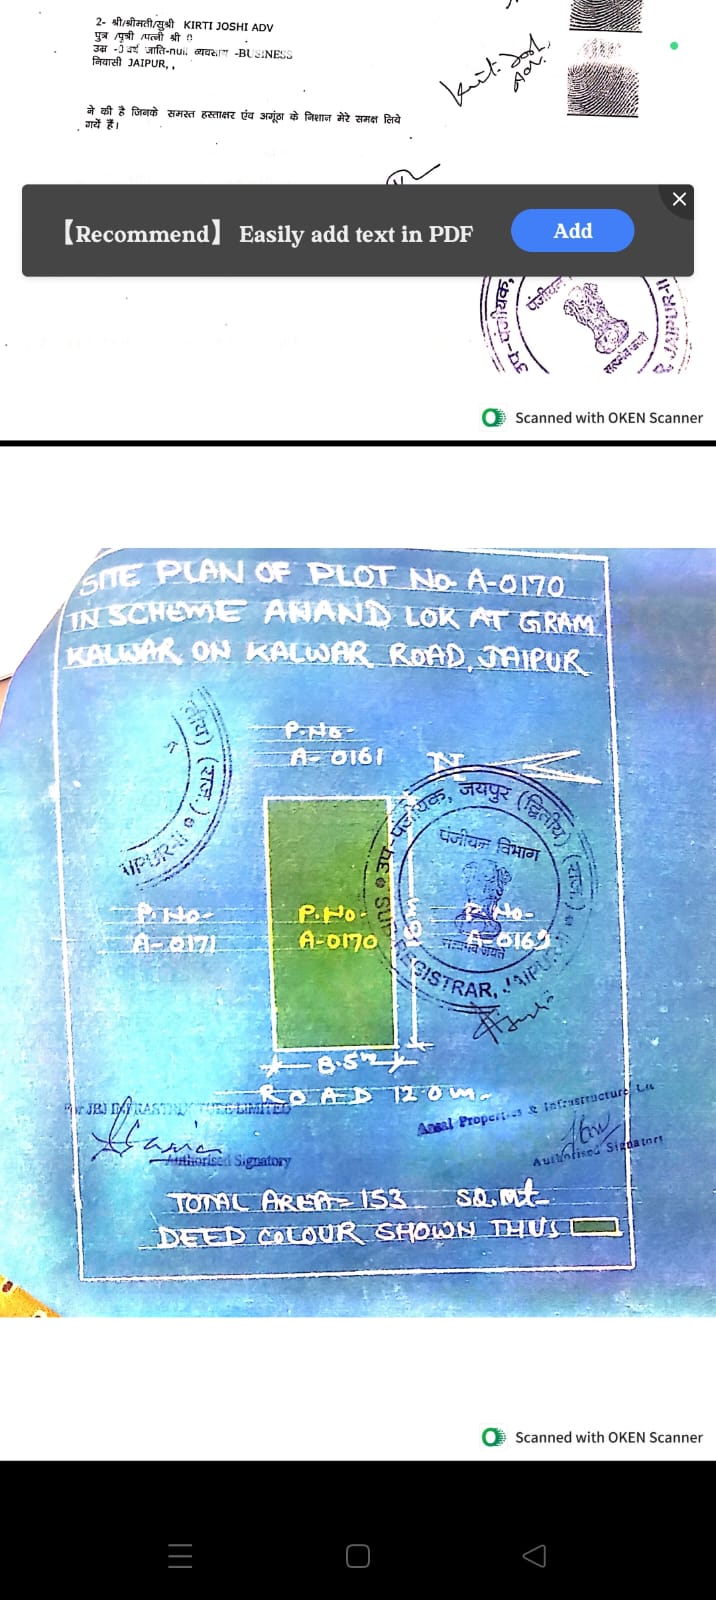 2- श्री/श्रीमती/सुश्री KIRTI JOSHI ADV
पुत्र /पुत्री /पत्नी श्री 0
उम्र -0 वर्ष जाति-null व्यवसाय -BUSINESS
निवासी JAIPUR, ,
ने की है जिनके समस्त हस्ताक्षर एंव अगूंठा के निशान मेरे समक्ष लिये
गयें हैं।
【Recommend】 Easily add text in PDF
Add
उप-पंजीयक,
पंजीयन
सत्यमेव जयते
Scanned with OKEN Scanner
SITE PLAN OF PLOT No A-0170
IN SCHEME ANAND LOK AT GRAM
KALWAR ON KALWAR ROAD, JAIPUR
P.No-
A-0161
N
P.No-
A-0171
P.No-
A-0170
18m
P.No-
A-0169
उप-पंजीयक, जयपुर (द्वितीय) (राज.)
पंजीयन विभाग
सत्यमेव जयते
SUB REGISTRAR, JAIPUR
8.5m
ROAD 12.0m.
For JBJ INFRASTRUCTURE LIMITED
Authorised Signatory
Ansal Properties & Infrastructure Ltd
Authorised Signatory
TOTAL AREA=153 SQ.Mt
DEED COLOUR SHOWN THUS
Scanned with OKEN Scanner